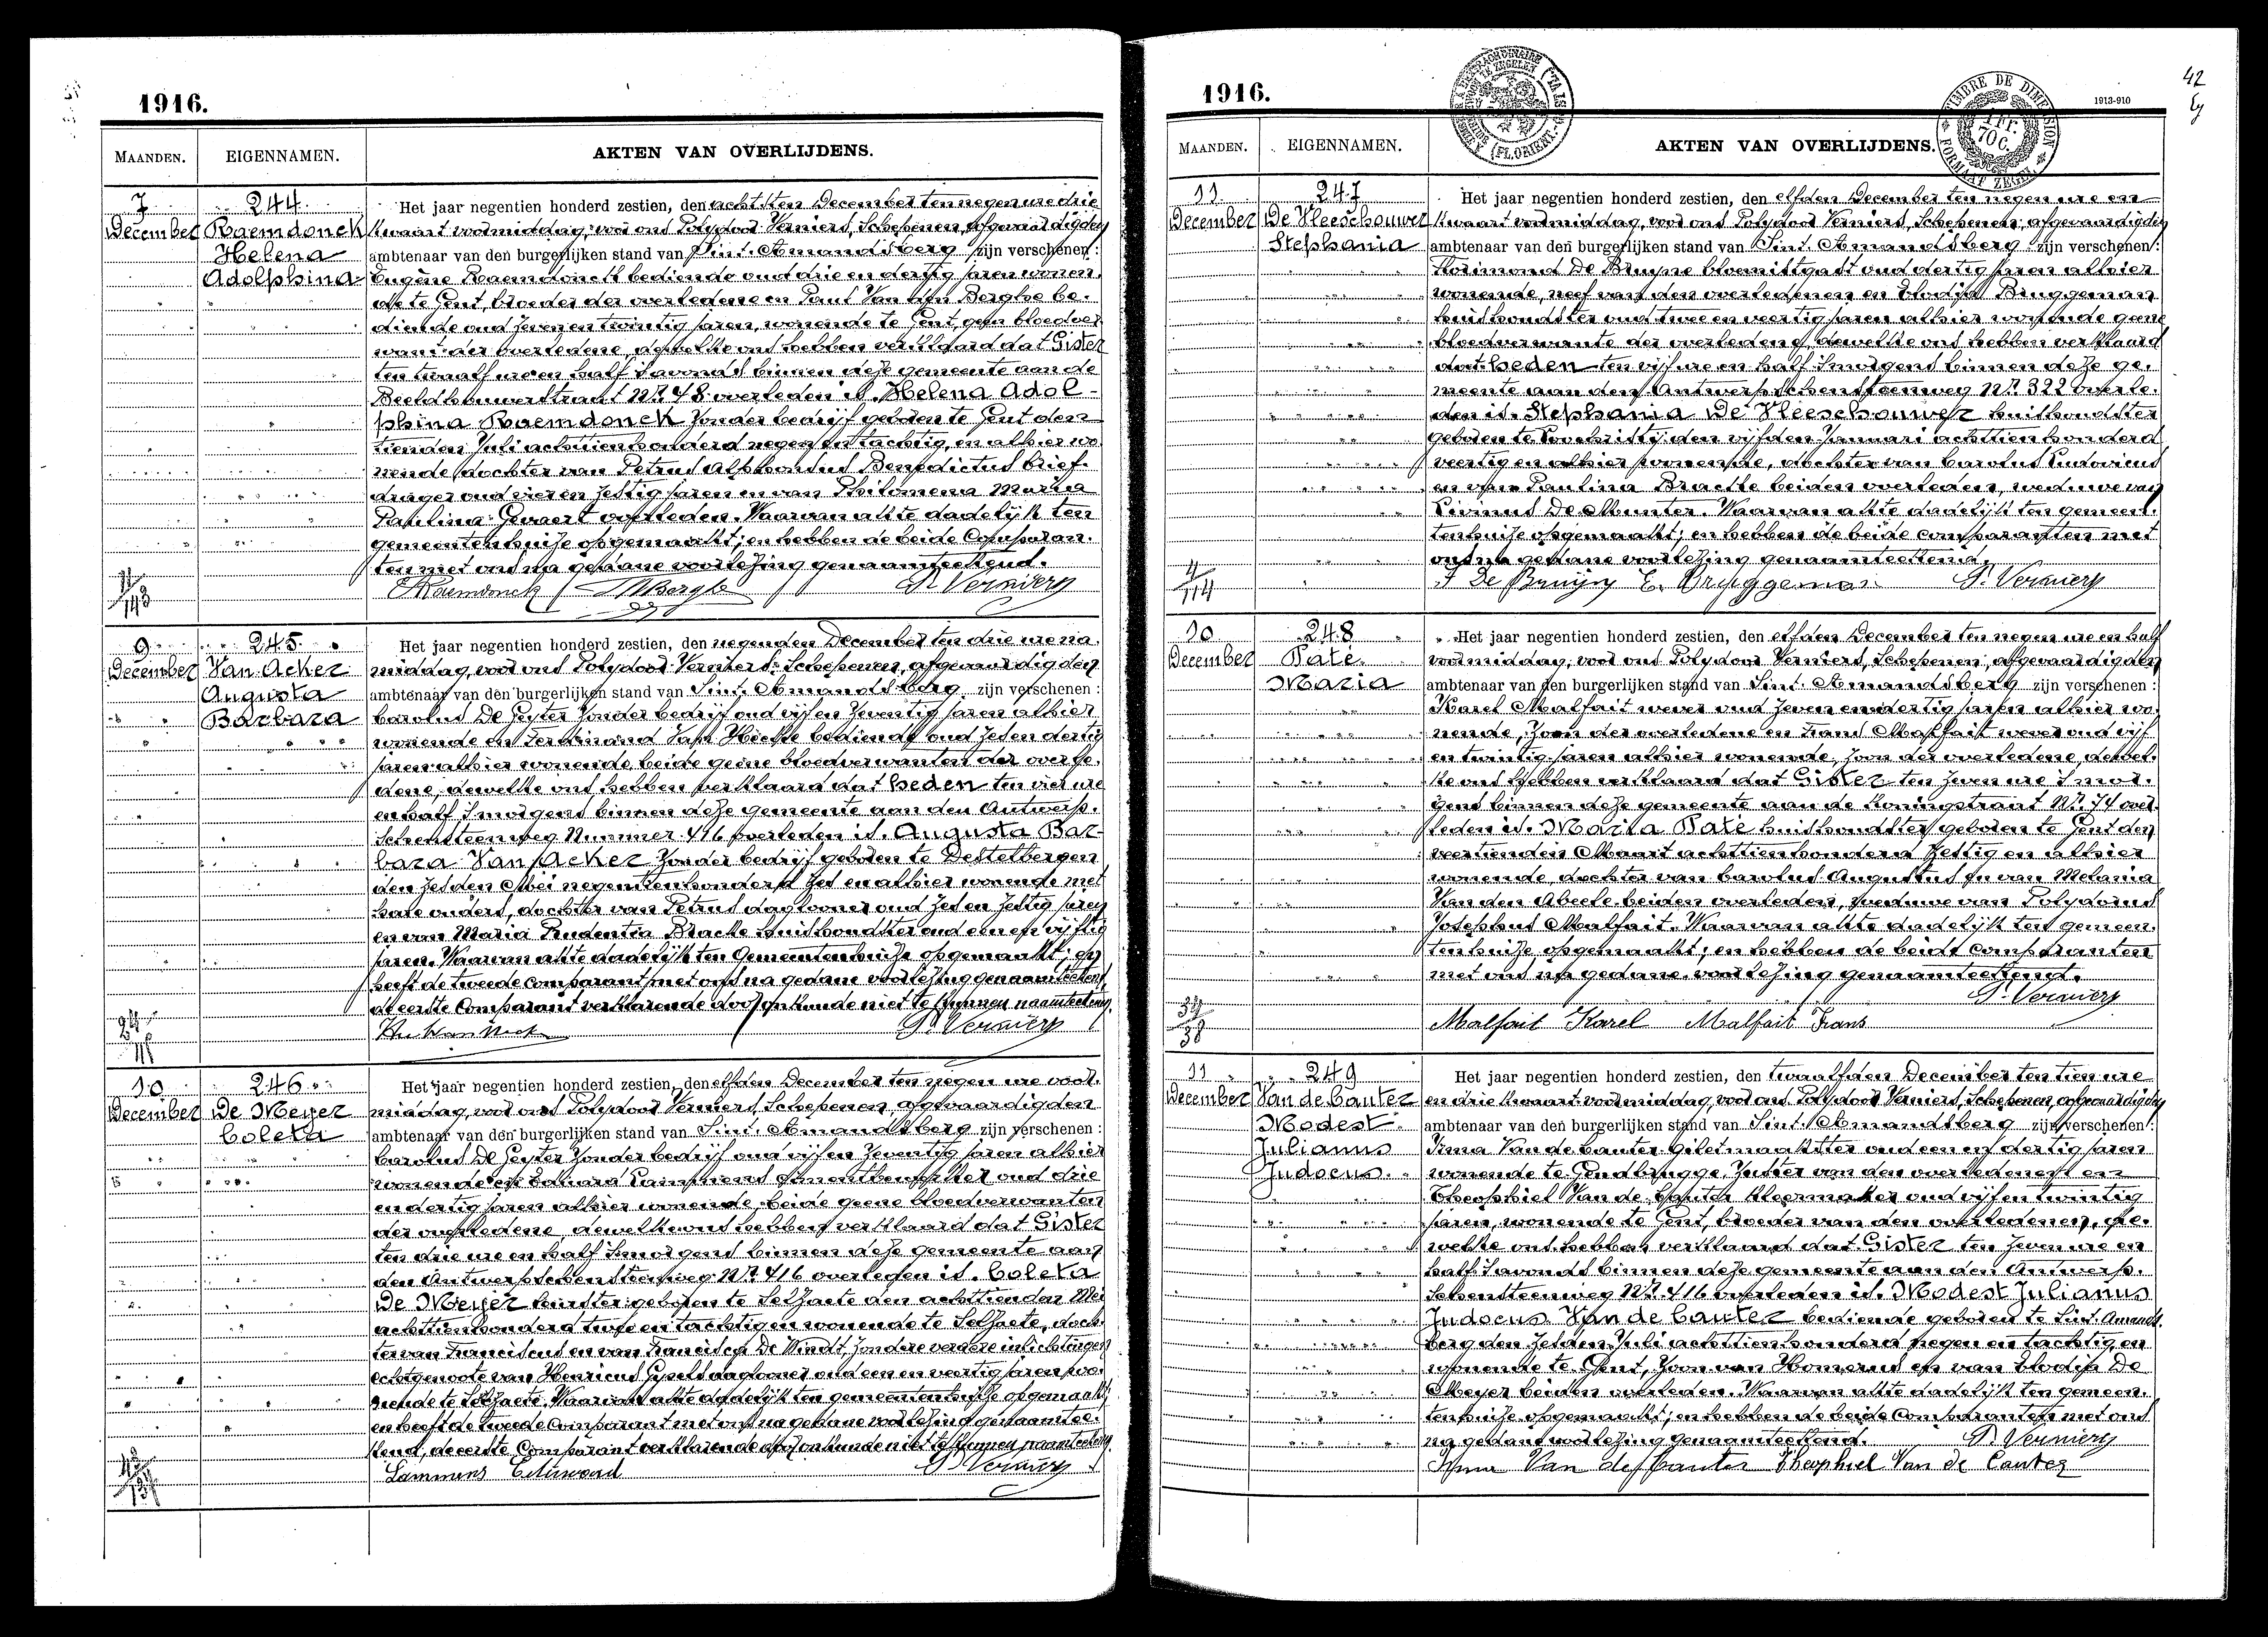 1916.
MAANDEN. EIGENNAMEN. AKTEN VAN OVERLIJDENS.
7 December
244
Raemdonck
Helena
Adolphina
Het jaar negentien honderd zestien, den achtsten December ten negen ure drie
kwaart voormiddag, voor ons Polydoor Verniers, Schepenen, afgevaardigden
ambtenaar van den burgerlijken stand van Sint. Amandsberg zijn verschenen:
Eugène Raemdonck bediende oud drie en dertig jaren wonen-
de te Gent, broeder der overledene en Paul Van den Berghe be-
diende oud zeven en twintig jaren, wonende te Gent, geen bloedver-
want der overledene, dewelke ons hebben verklaard dat Gister
ten twaalf ure en half s'avonds binnen deze gemeente aan de
Beeldhouwerstraat Nr. 48 overleden is. Helena Adol-
phina Raemdonck zonder bedrijf geboren te Gent den
tienden Juli achttienhonderd negen en tachtig, en alhier wo-
nende, dochter van Petrus Alphonsus Benedictus brief-
drager oud vier en zestig jaren en van Philomena Maria
Paulina Gevaert overleden. Waarvan akte dadelijk ten
gemeentenhuize opgemaakt; en hebben de beide Comparan-
ten met ons na gedane voorlezing genaamteekend.
Raemdonck P. Verniers
9 December
245
Van Acker
Augusta
Barbara
Het jaar negentien honderd zestien, den negenden December ten drie ure na-
middag, voor ons Polydoor Verniers, Schepenen, afgevaardigden
ambtenaar van den burgerlijken stand van Sint. Amandsberg zijn verschenen:
Carolus De Geyter zonder bedrijf oud vijf en zeventig jaren alhier
wonende en Ferdinand Van Hecke bediende oud zes en dertig
jaren alhier wonende, beide geene bloedverwanten der overle-
dene, dewelke ons hebben verklaard dat heden ten vier ure
en half s'morgens binnen deze gemeente aan den Antwerp-
schensteenweg Nummer 416 overleden is. Augusta Bar-
bara Van Acker zonder bedrijf geboren te Destelbergen
den zesden Mei negentienhonderd zes en alhier wonende met
hare ouders, dochter van Petrus daglooner oud zes en zestig jaren
en van Maria Prudentia Bracke huishoudster oud een en vijftig
jaren. Waarvan akte dadelijk ten Gemeentenhuize opgemaakt; en
heeft de tweede comparant met ons na gedane voorlezing genaamteekend,
de eerste Comparant verklarende door onkunde niet te kunnen naamteekenen.
P. Verniers
10 December
246
De Meyer
Coleta
Het jaar negentien honderd zestien, den elfden December ten negen ure voor-
middag, voor ons Polydoor Verniers, Schepenen, afgevaardigden
ambtenaar van den burgerlijken stand van Sint. Amandsberg zijn verschenen:
Carolus De Geyter zonder bedrijf oud vijf en zeventig jaren alhier
wonende en Eduard Lammens oud drie
en dertig jaren alhier wonende, beide geene bloedverwanten
der overledene, dewelke ons hebben verklaard dat Gister
ten drie ure en half s'morgens binnen deze gemeente aan
den Antwerpschensteenweg Nr. 416 overleden is. Coleta
De Meyer geboren te Selzaete den achttienden Mei
achttienhonderd twee en tachtig en wonende te Selzaete, doch-
ter van Franciscus en van Francisca De Windt, zondere verdere inlichtingen
echtgenoote van Henricus daglooner oud een en veertig jaren wo-
nende te Selzaete. Waarvan akte dadelijk ten gemeentenhuize opgemaakt;
en heeft de tweede Comparant met ons na gedane voorlezing genaamtee-
kend, de eerste Comparant verklarende door onkunde niet te kunnen naamteekenen.
Lammens Eduward P. Verniers
1916.
42
1913-910
MAANDEN. EIGENNAMEN. AKTEN VAN OVERLIJDENS.
11 December
247
De Vleeschouwer
Stephania
Het jaar negentien honderd zestien, den elfden December ten negen ure en
kwaart voormiddag, voor ons Polydoor Verniers, Schepenen, afgevaardigden
ambtenaar van den burgerlijken stand van Sint. Amandsberg zijn verschenen:
Florimond De Bruyne bloemistgast oud dertig jaren alhier
wonende, neef van den overledenen en Elodia Bruggeman
huishoudster oud twee en veertig jaren alhier wonende geene
bloedverwante der overledene, dewelke ons hebben verklaard
dat heden ten vijf ure en half s'morgens binnen deze ge-
meente aan den Antwerpschensteenweg Nr. 322 overle-
den is. Stephania De Vleeschouwer huishoudster
geboren te Lochristij den vijfden Januari achttien honderd
veertig en alhier wonende, dochter van Carolus Ludovicus
en van Paulina Bracke beiden overleden, weduwe van
Livinus De Munter. Waarvan akte dadelijk ten gemeen-
tenhuize opgemaakt; en hebben de beide comparanten met
ons na gedane voorlezing genaamteekend.
F De Bruijn E. Bruggeman P. Verniers
10 December
248
Paté
Maria
Het jaar negentien honderd zestien, den elfden December ten negen ure en half
voormiddag, voor ons Polydoor Verniers, Schepenen, afgevaardigden
ambtenaar van den burgerlijken stand van Sint. Amandsberg zijn verschenen:
Karel Malfait wever oud zeven en dertig jaren alhier wo-
nende, zoon der overledene en Frans Malfait wever oud vijf
en twintig jaren alhier wonende, zoon der overledene, dewel-
ke ons hebben verklaard dat Gister ten zeven ure s'mor-
gens binnen deze gemeente aan de Koningstraat Nr. 74 over-
leden is. Maria Paté huishoudster geboren te Gent den
veertienden Maart achttienhonderd zestig en alhier
wonende, dochter van Carolus Augustus en van Melania
Van den Abeele beiden overleden, weduwe van Polydorus
Josephus Malfait. Waarvan akte dadelijk ten gemeen-
tenhuize opgemaakt; en hebben de beide Comparanten
met ons na gedane voorlezing genaamteekend.
P. Verniers
Malfait Karel Malfait Frans
11 December
249
Van de Cauter
Modest
Julianus
Judocus
Het jaar negentien honderd zestien, den twaalfden December ten tien ure
en drie kwaart voormiddag, voor ons Polydoor Verniers, Schepenen, afgevaardigden
ambtenaar van den burgerlijken stand van Sint. Amandsberg zijn verschenen:
Irma Van de Cauter Giletmaakster oud een en dertig jaren
wonende te Gendbrugge, zuster van den overledenen en
Theophiel Van de Cauter kleermaker oud vijf en twintig
jaren, wonende te Gent, broeder van den overledenen, de-
welke ons hebben verklaard dat Gister ten zeven ure en
half s'avonds binnen deze gemeente aan den Antwerp-
schensteenweg Nr. 416 overleden is. Modest Julianus
Judocus Van de Cauter bediende geboren te Sint. Amands-
berg den zesden Juli achttienhonderd negen en tachtig, en
wonende te Gent, zoon van Homerus en van Elodia De
Meyer beiden overleden. Waarvan akte dadelijk ten gemeen-
tenhuize opgemaakt; en hebben de beide Comparanten met ons
na gedane voorlezing genaamteekend. P. Verniers
Irma Van de Cauter Theophiel Van de Cauter